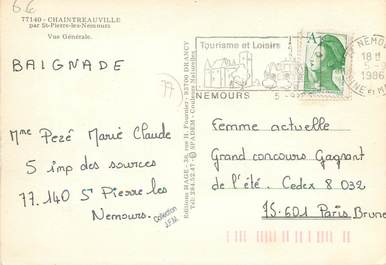 66
77140 - CHAINTREAUVILLE
par St-Pierre-les-Nemours
Vue Générale.
BAIGNADE
77
Mme Pezé Marie Claude
5 imp des sources
77.140 St Pierre les
Nemours.
Collection
J.F.M.
Editions MAGE - 38, rue H. Fournier - 93700 DRANCY
Tél. 284.52.47 - © SPADEM - Couleurs Naturelles
Tourisme et Loisirs
NEMOURS
A
NEMO
18 H
5
1986
NE et M
Femme actuelle
Grand concours Gagnant
de l'été. Cedex 8 032
75.601 Paris Brune